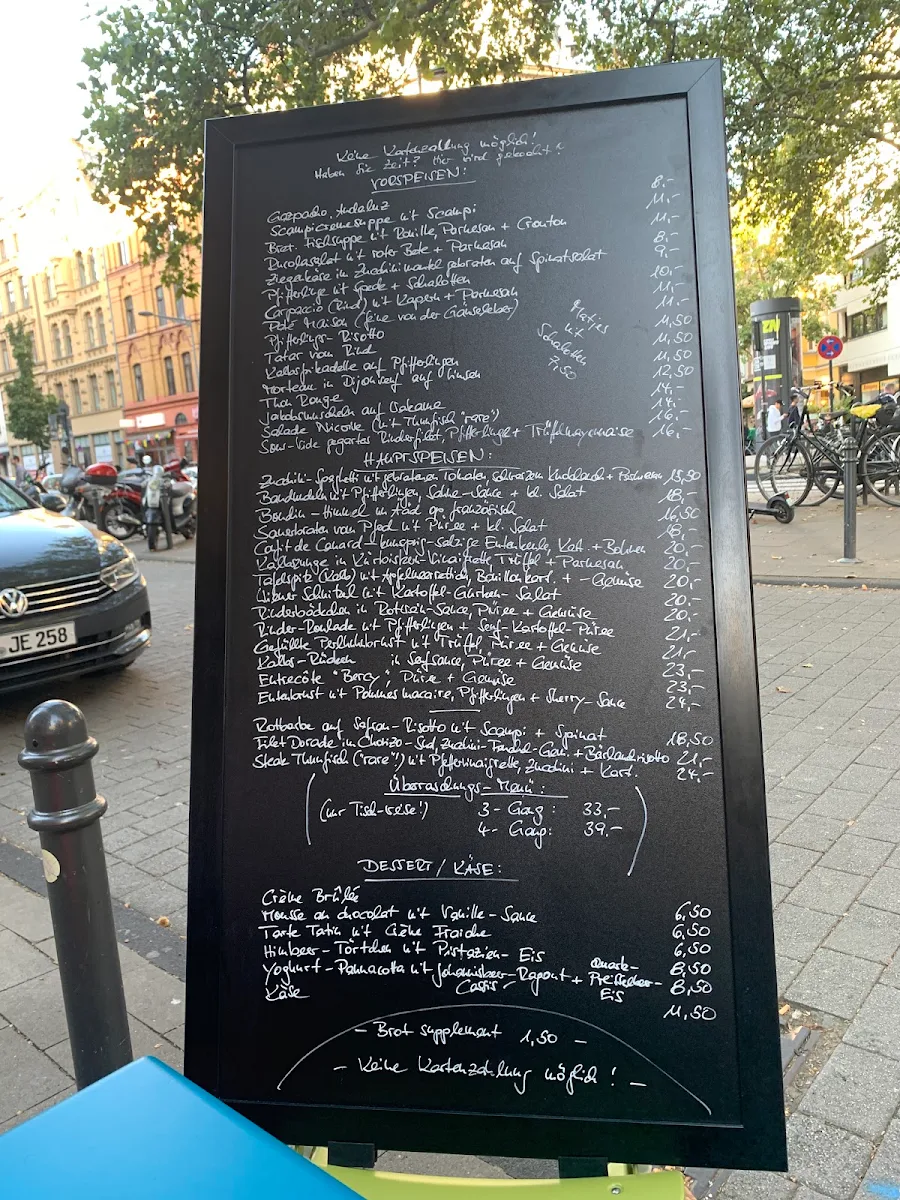 Keine Kartenzahlung möglich!
Haben Sie Zeit? Hier wird gekocht!
VORSPEISEN:
Gazpacho Andaluz 8,-
Scampicremesuppe mit Scampi 11,-
Bret. Fischsuppe mit Rouille, Parmesan + Crouton 11,-
Rucolasalat mit roter Bete + Parmesan 8,-
Ziegenkäse im Zucchinimantel gebraten auf Spinatsalat 9,-
Pfifferlinge mit Speck + Schalotten 10,-
Carpaccio (Rind) mit Kapern + Parmesan 11,-
Paté Maison (feine von der Gänseleber) 11,-
Pfifferlings-Risotto 11,50
Tatar vom Rind 11,50
Kalbsfrikadelle auf Pfifferlingen 11,50
Morteau in Dijonsenf auf Linsen 12,50
Thon Rouge 14,-
Jakobsmuscheln auf 14,-
Salade Nicoise (mit Thunfisch "rare") 16,-
Sous-Vide gegartes Rinderfilet, Pfifferlinge + Trüffelmayonnaise 16,-
Matjes
mit
Schalotten
7,50
HAUPTSPEISEN:
Zucchini-Spaghetti mit gebratenen Tomaten, schwarzem Knoblauch + Parmesan 15,50
Bandnudeln mit Pfifferlingen, Sahne-Sauce + kl. Salat 18,-
Boudin - Himmel un Ääd op französisch 16,50
Sauerbraten vom Pferd mit Püree + kl. Salat 18,-
Confit de Canard - knusprig-salzige Entenkeule, Kart. + Bohnen 20,-
Kalbszunge in Kürbiskern-Vinaigrette, Trüffel + Parmesan 20,-
Tafelspitz (Kalb) mit Apfelmeerrettich, Bouillonkart. + -Gemüse 20,-
Wiener Schnitzel mit Kartoffel-Gurken-Salat 20,-
Rinderbäckchen in Rotwein-Sauce, Püree + Gemüse 20,-
Rinder-Roulade mit Pfifferlingen + Senf-Kartoffel-Püree 21,-
Gefüllte Perlhuhnbrust mit Trüffel, Püree + Gemüse 21,-
Kalbs-Rücken in Senfsauce, Püree + Gemüse 23,-
Entrecôte "Bercy", Püree + Gemüse 23,-
Entenbrust mit Pommes macaire, Pfifferlingen + Sherry-Sauce 24,-
Rotbarbe auf Safran-Risotto mit Scampi + Spinat 18,50
Filet Dorade im Chorizo-Sud, Zucchini-Fenchel-Gem. + Bärlauchrisotto 21,-
Steak Thunfisch ("rare") mit Pfeffervinaigrette, Zucchini + Kart. 24,-
Überraschungs-Menü:
(nur Tisch-weise!) 3-Gang: 33,-
4-Gang: 39,-
DESSERT / KÄSE:
Crème Brûlée 6,50
Mousse au chocolat mit Vanille-Sauce 6,50
Tarte Tatin mit Crème Fraîche 6,50
Himbeer-Törtchen mit Pistazien-Eis 8,50
Yoghurt-Pannacotta mit Johannisbeer-Cassis-Ragout + Quark-Preiselbeer-Eis 8,50
Käse 11,50
- Brot supplement 1,50 -
- Keine Kartenzahlung möglich! -
JE 258